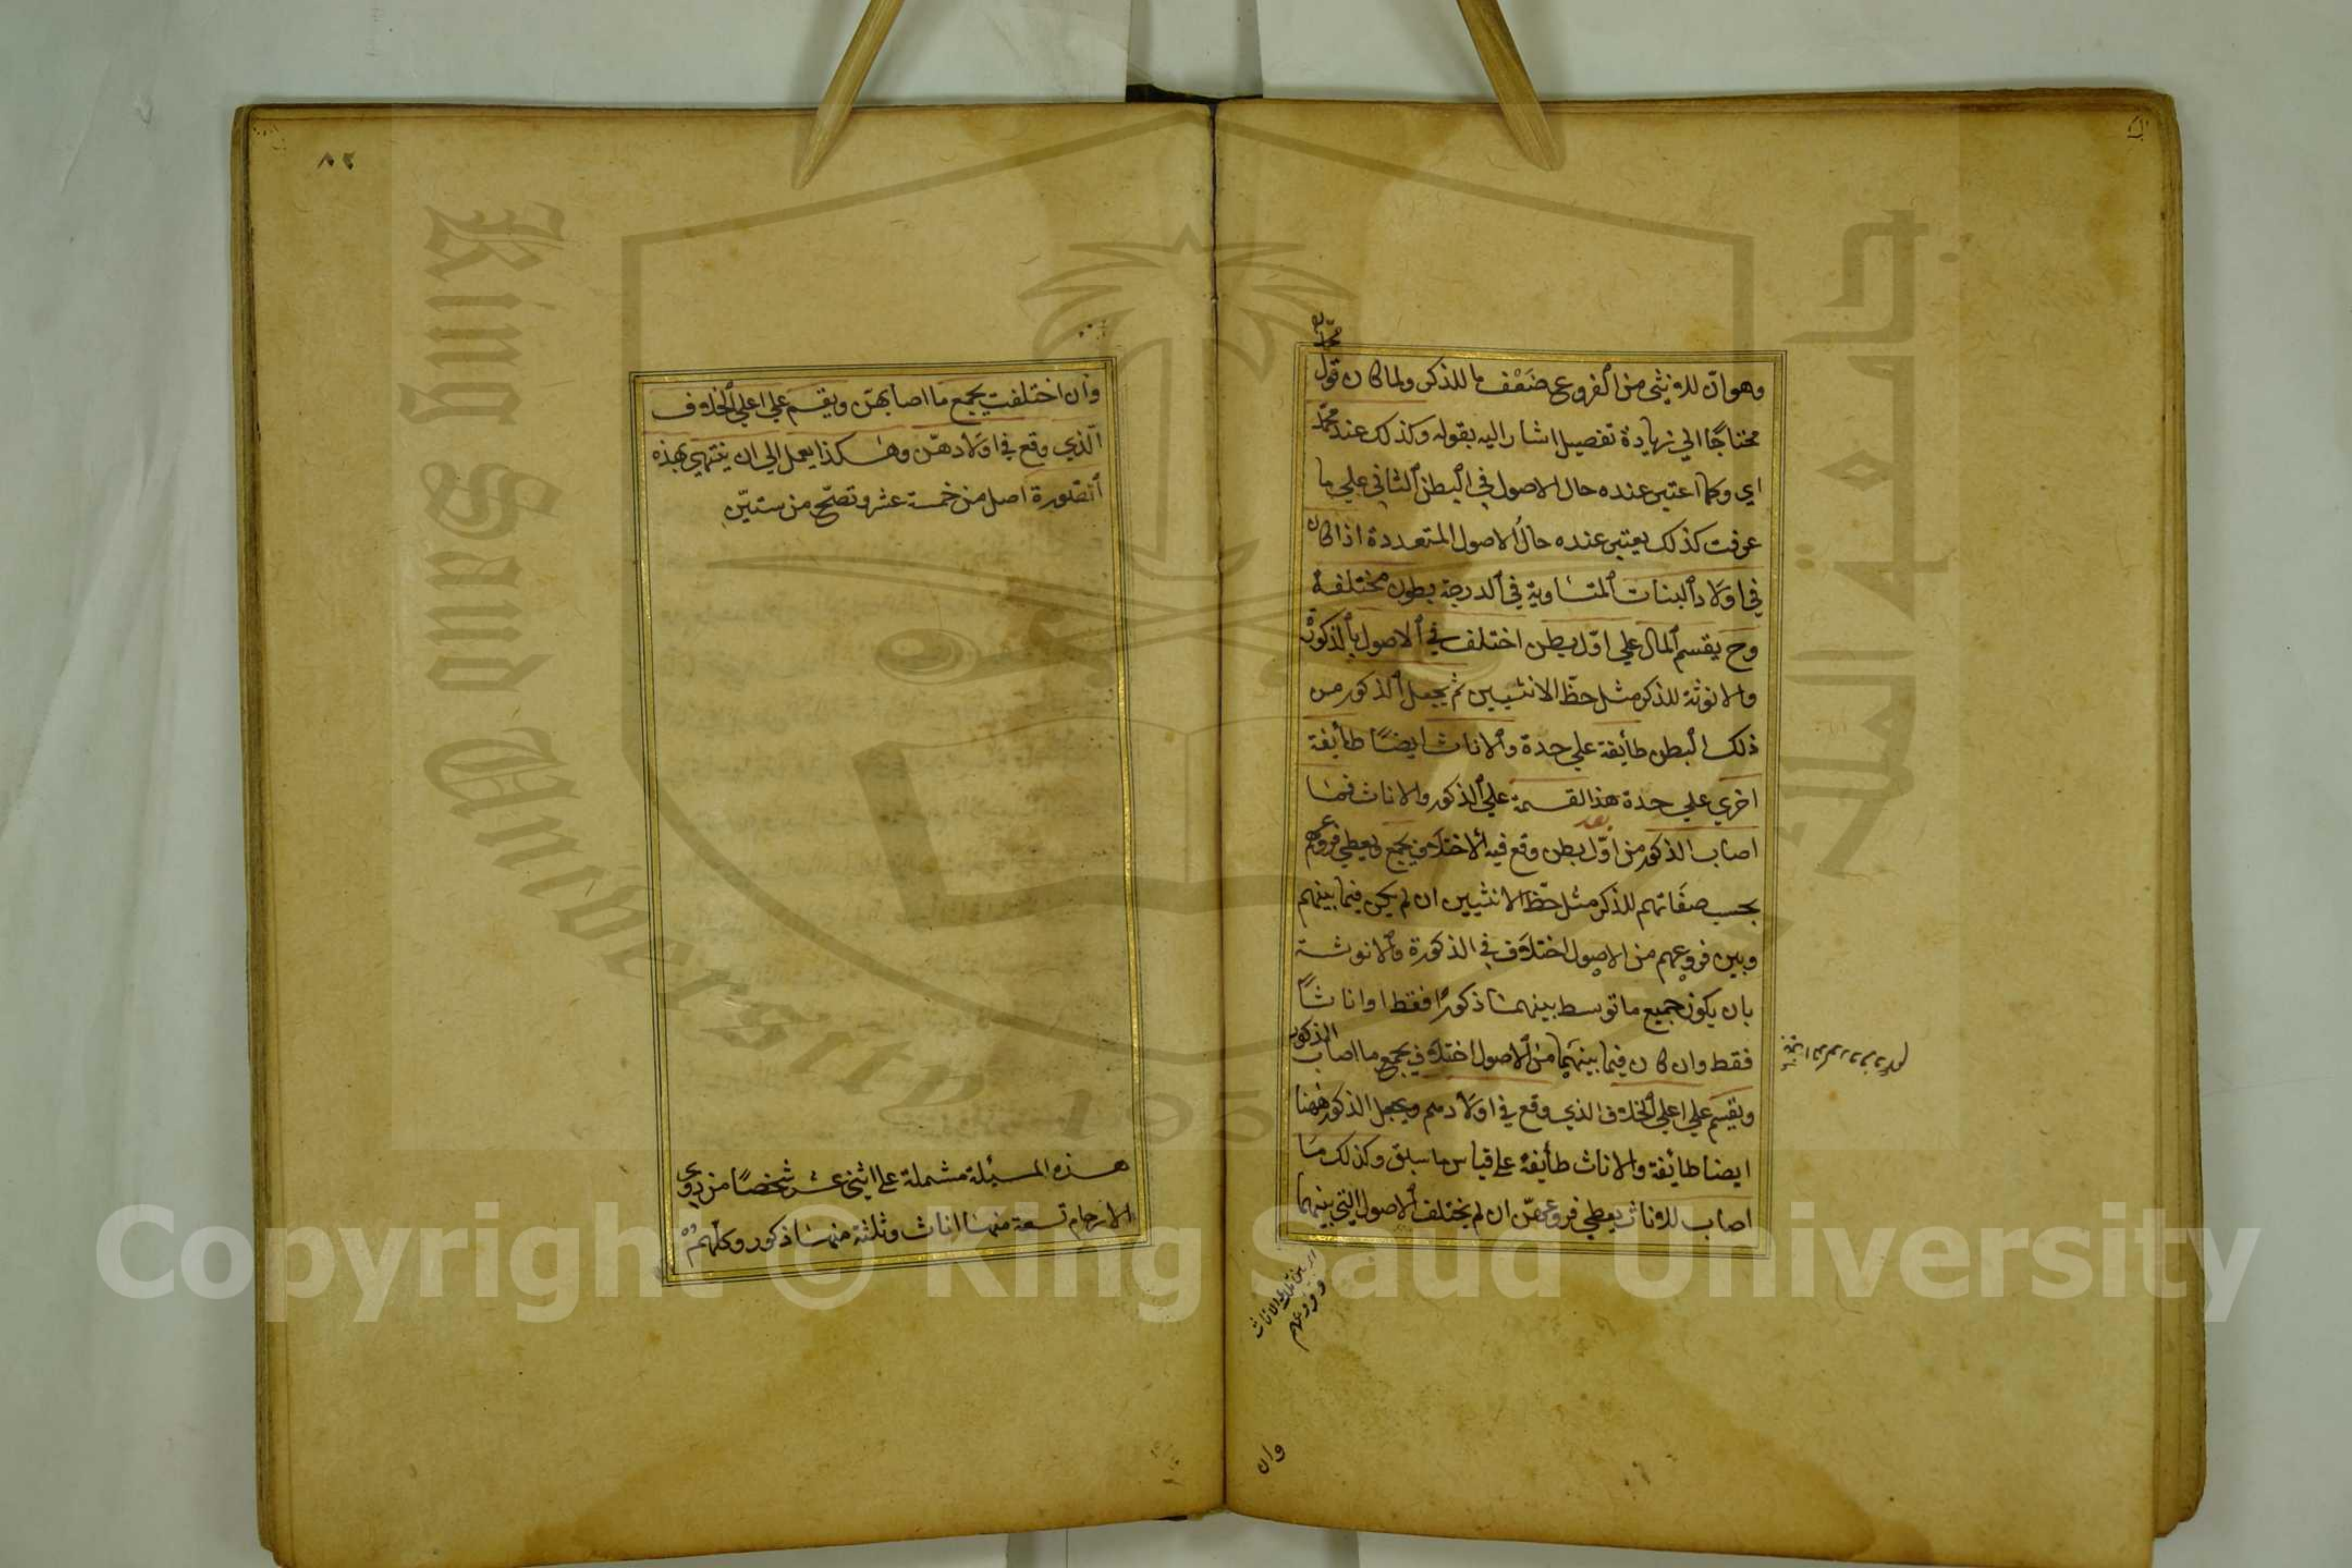 وهو ان للانثى من الفروع ضعف ما للذكر ولما كان قول
محمد
محتاجًا الي زيادة تفصيل اشار اليه بقوله وكذلك عند محمد
اي وكما اعتبر عنده حال الاصول في البطن الثاني علي ما
عرفت كذلك يعتبر عنده حال الاصول المتعددة اذا كان
في اولاد البنات المتساوية في الدرجة بطون مختلفة
وح يقسم المال علي اوّل بطن اختلف في الاصول بالذكورة
والانوثة للذكر مثل حظّ الانثيين ثم يجعل الذكور من
ذلك البطن طائفة علي حدة والاناث ايضًا طائفة
اخري علي حدة هذا القسمة علي الذكور والاناث فما
بعد
اصاب الذكور من اوّل بطن وقع فيه الاختلاف يجمع ويعطي فروعهم
بحسب صفاتهم للذكر مثل حظّ الانثيين ان لم يكن فيما بينهم
وبين فروعهم من الاصول اختلاف في الذكورة والانوثة
بان يكون جميع ما توسط بينهما ذكورًا فقط او اناثًا
فقط وان كان فيما بينهما من الاصول اختلاف يجمع ما اصاب الذكور
ويقسم علي اعلي الخلاف الذي وقع في اولادهم ويجعل الذكور ههنا
ايضا طائفة والاناث طائفة علي قياس ما سبق وكذلك ما
اصاب للاناث يعطي فروعهنّ ان لم يختلف الاصول التي بينهما
بين تلك الاناث
وفروعهم
وان
٨٢
وان اختلفت يجمع ما اصابهنّ ويقسم علي اعلي الخلاف
الّذي وقع في اولادهنّ وهكذا يعمل الي ان ينتهي بهذه
الصّورة اصل من خمسة عشر وتصحّ من ستيّن
هذه المسئلة مشملة علي اثني عشر شخصًا من ذوي
الارحام تسعة منها اناث وثلثة منها ذكور وكلهم
King Saud University
1957
جامعة الملك سعود
Copyright © King Saud University